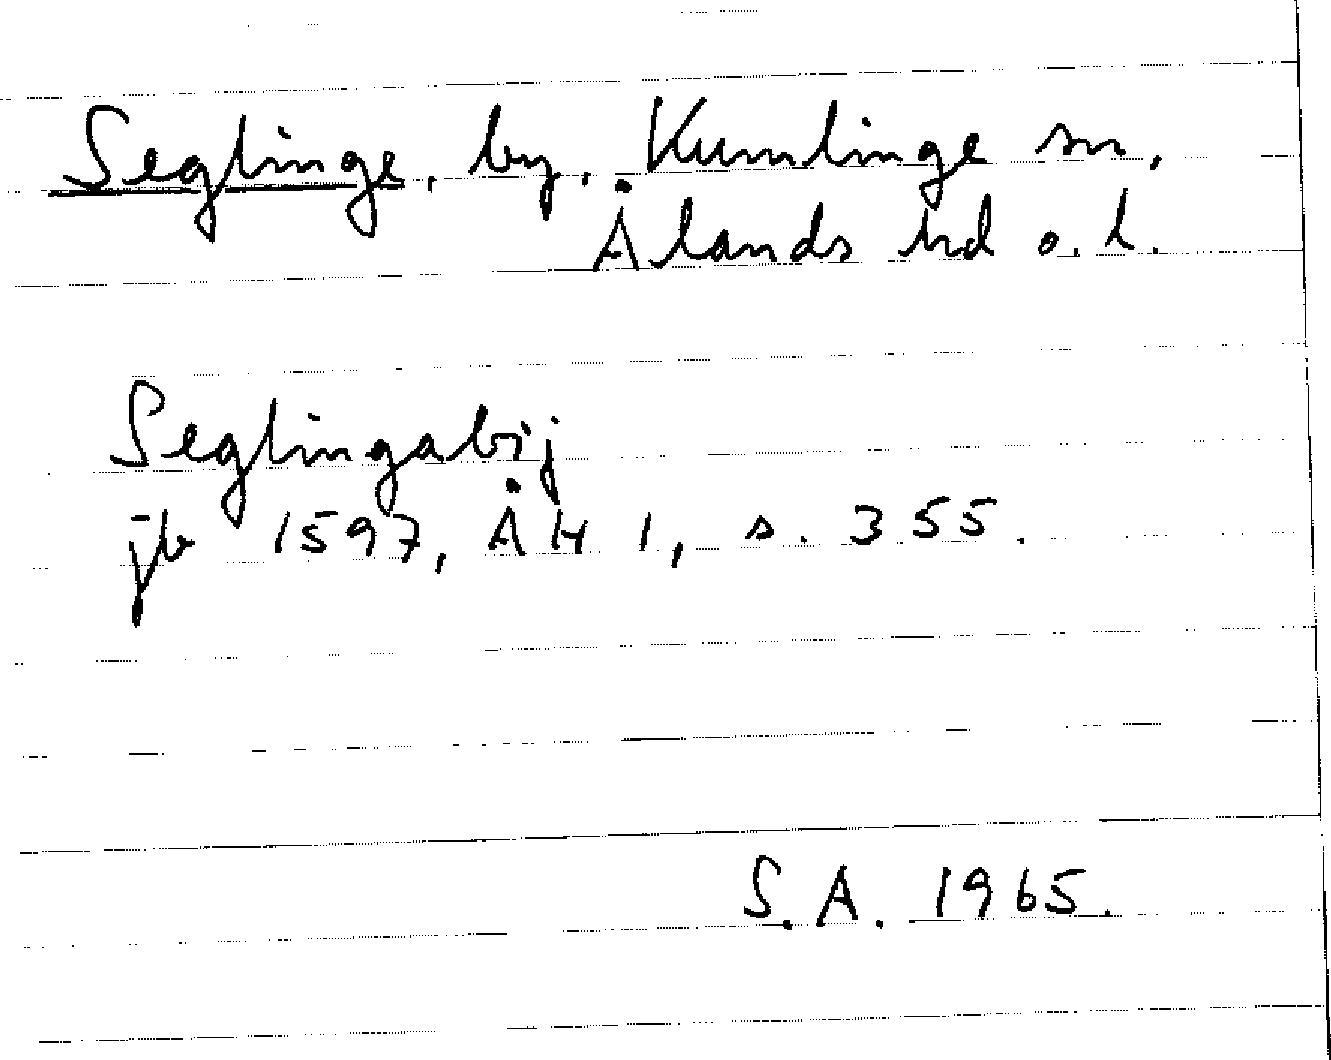 Seglinge, by, Kumlinge sn,
Ålands hd o. l.
Seglingabij
jb 1597, ÅH 1, s. 355.
S.A. 1965.